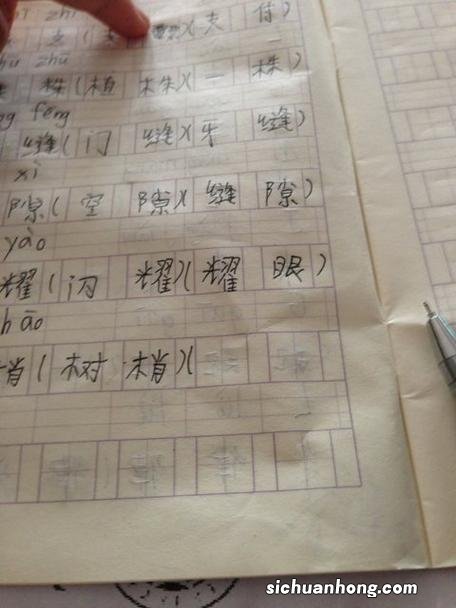 zhī
支(支
夫 付)
zhū
株(植 株)(一 株)
fēng
缝(门 缝)(牙 缝)
xì
隙(空 隙)(缝 隙)
yào
耀(闪 耀)(耀 眼)
hāo
梢(树 梢)(
sichuanhong.com